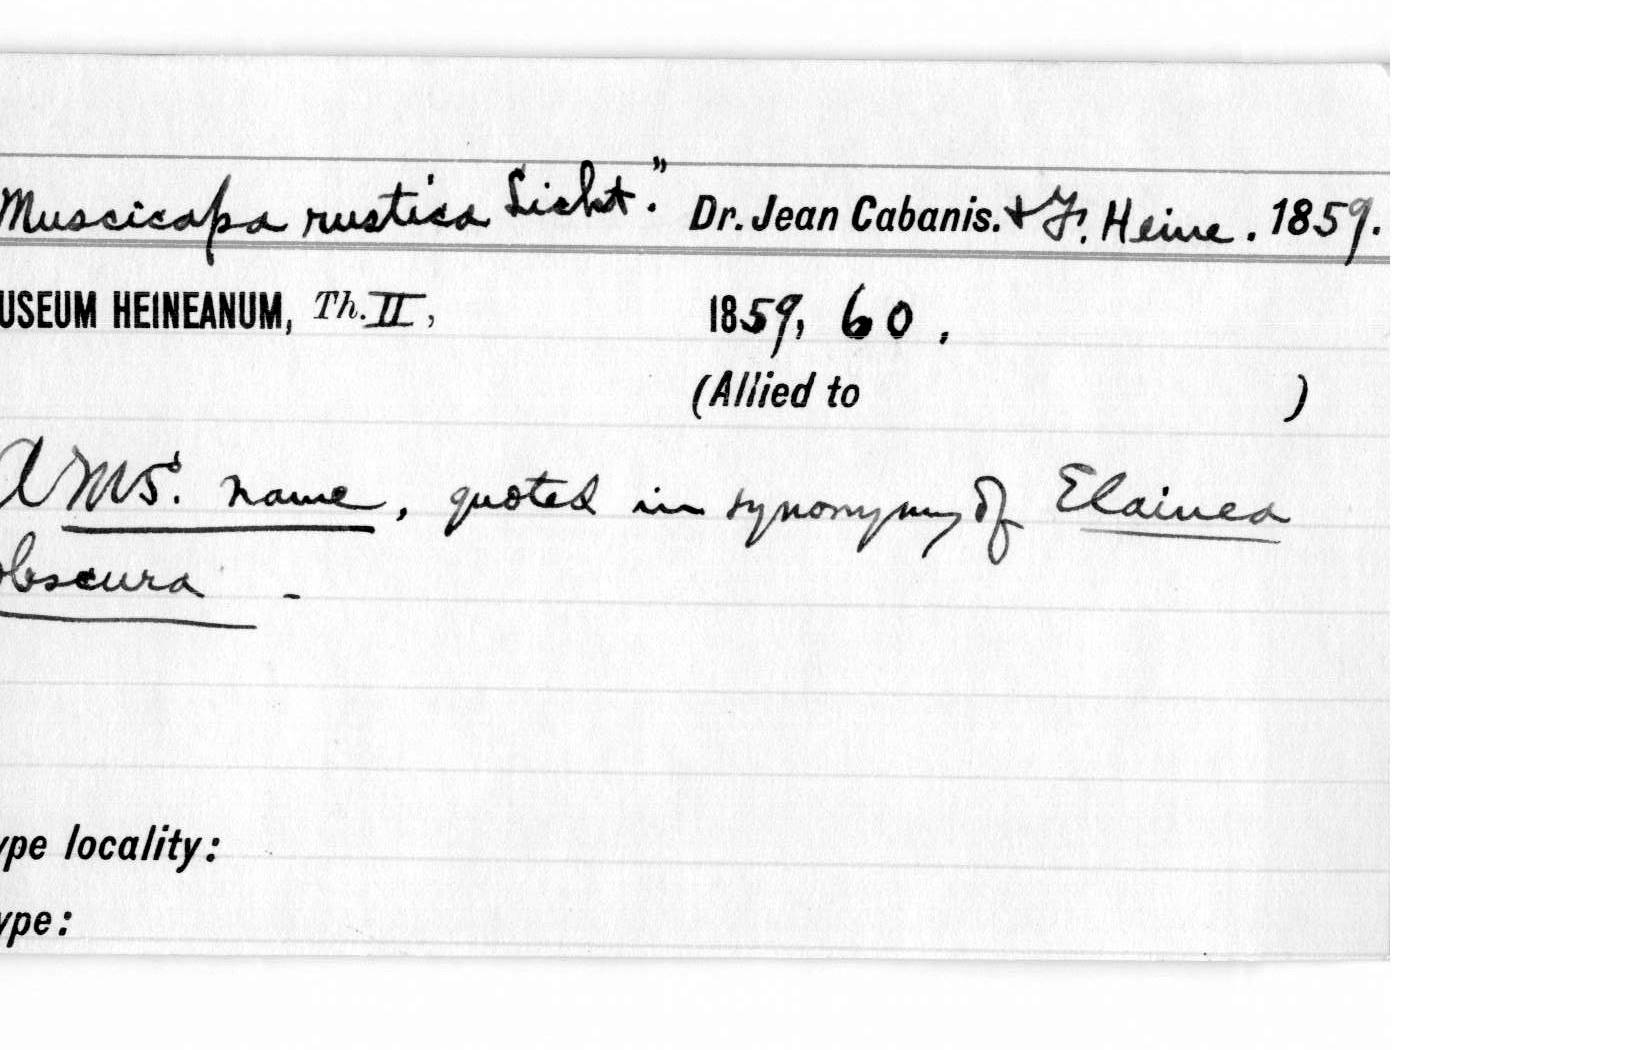 Muscicapa rustica Licht." Dr. Jean Cabanis. + F. Heine. 1859.
USEUM HEINEANUM, Th. II, 1859, 60,
(Allied to )
A MS. name, quoted in synonymy of Elainea
obscura -
ype locality:
ype: